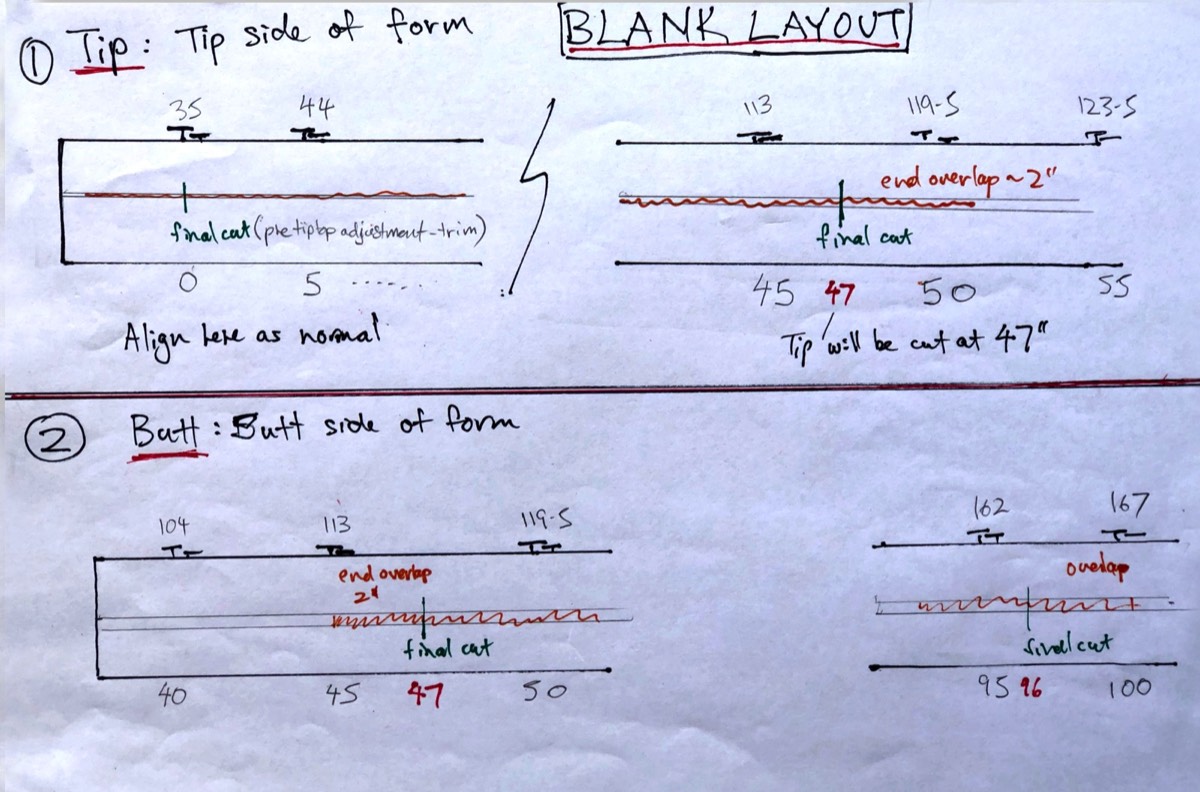 BLANK LAYOUT
① Tip: Tip side of form
35 44 113 119-5 123-5
end overlap ~ 2"
final cut (pre tiptop adjustment - trim)
final cut
0 5 ...... 45 47 50 55
Align here as normal
Tip will be cut at 47"
② Butt: Butt side of form
104 113 119-5 162 167
end overlap
2"
overlap
final cut
final cut
40 45 47 50 95 96 100